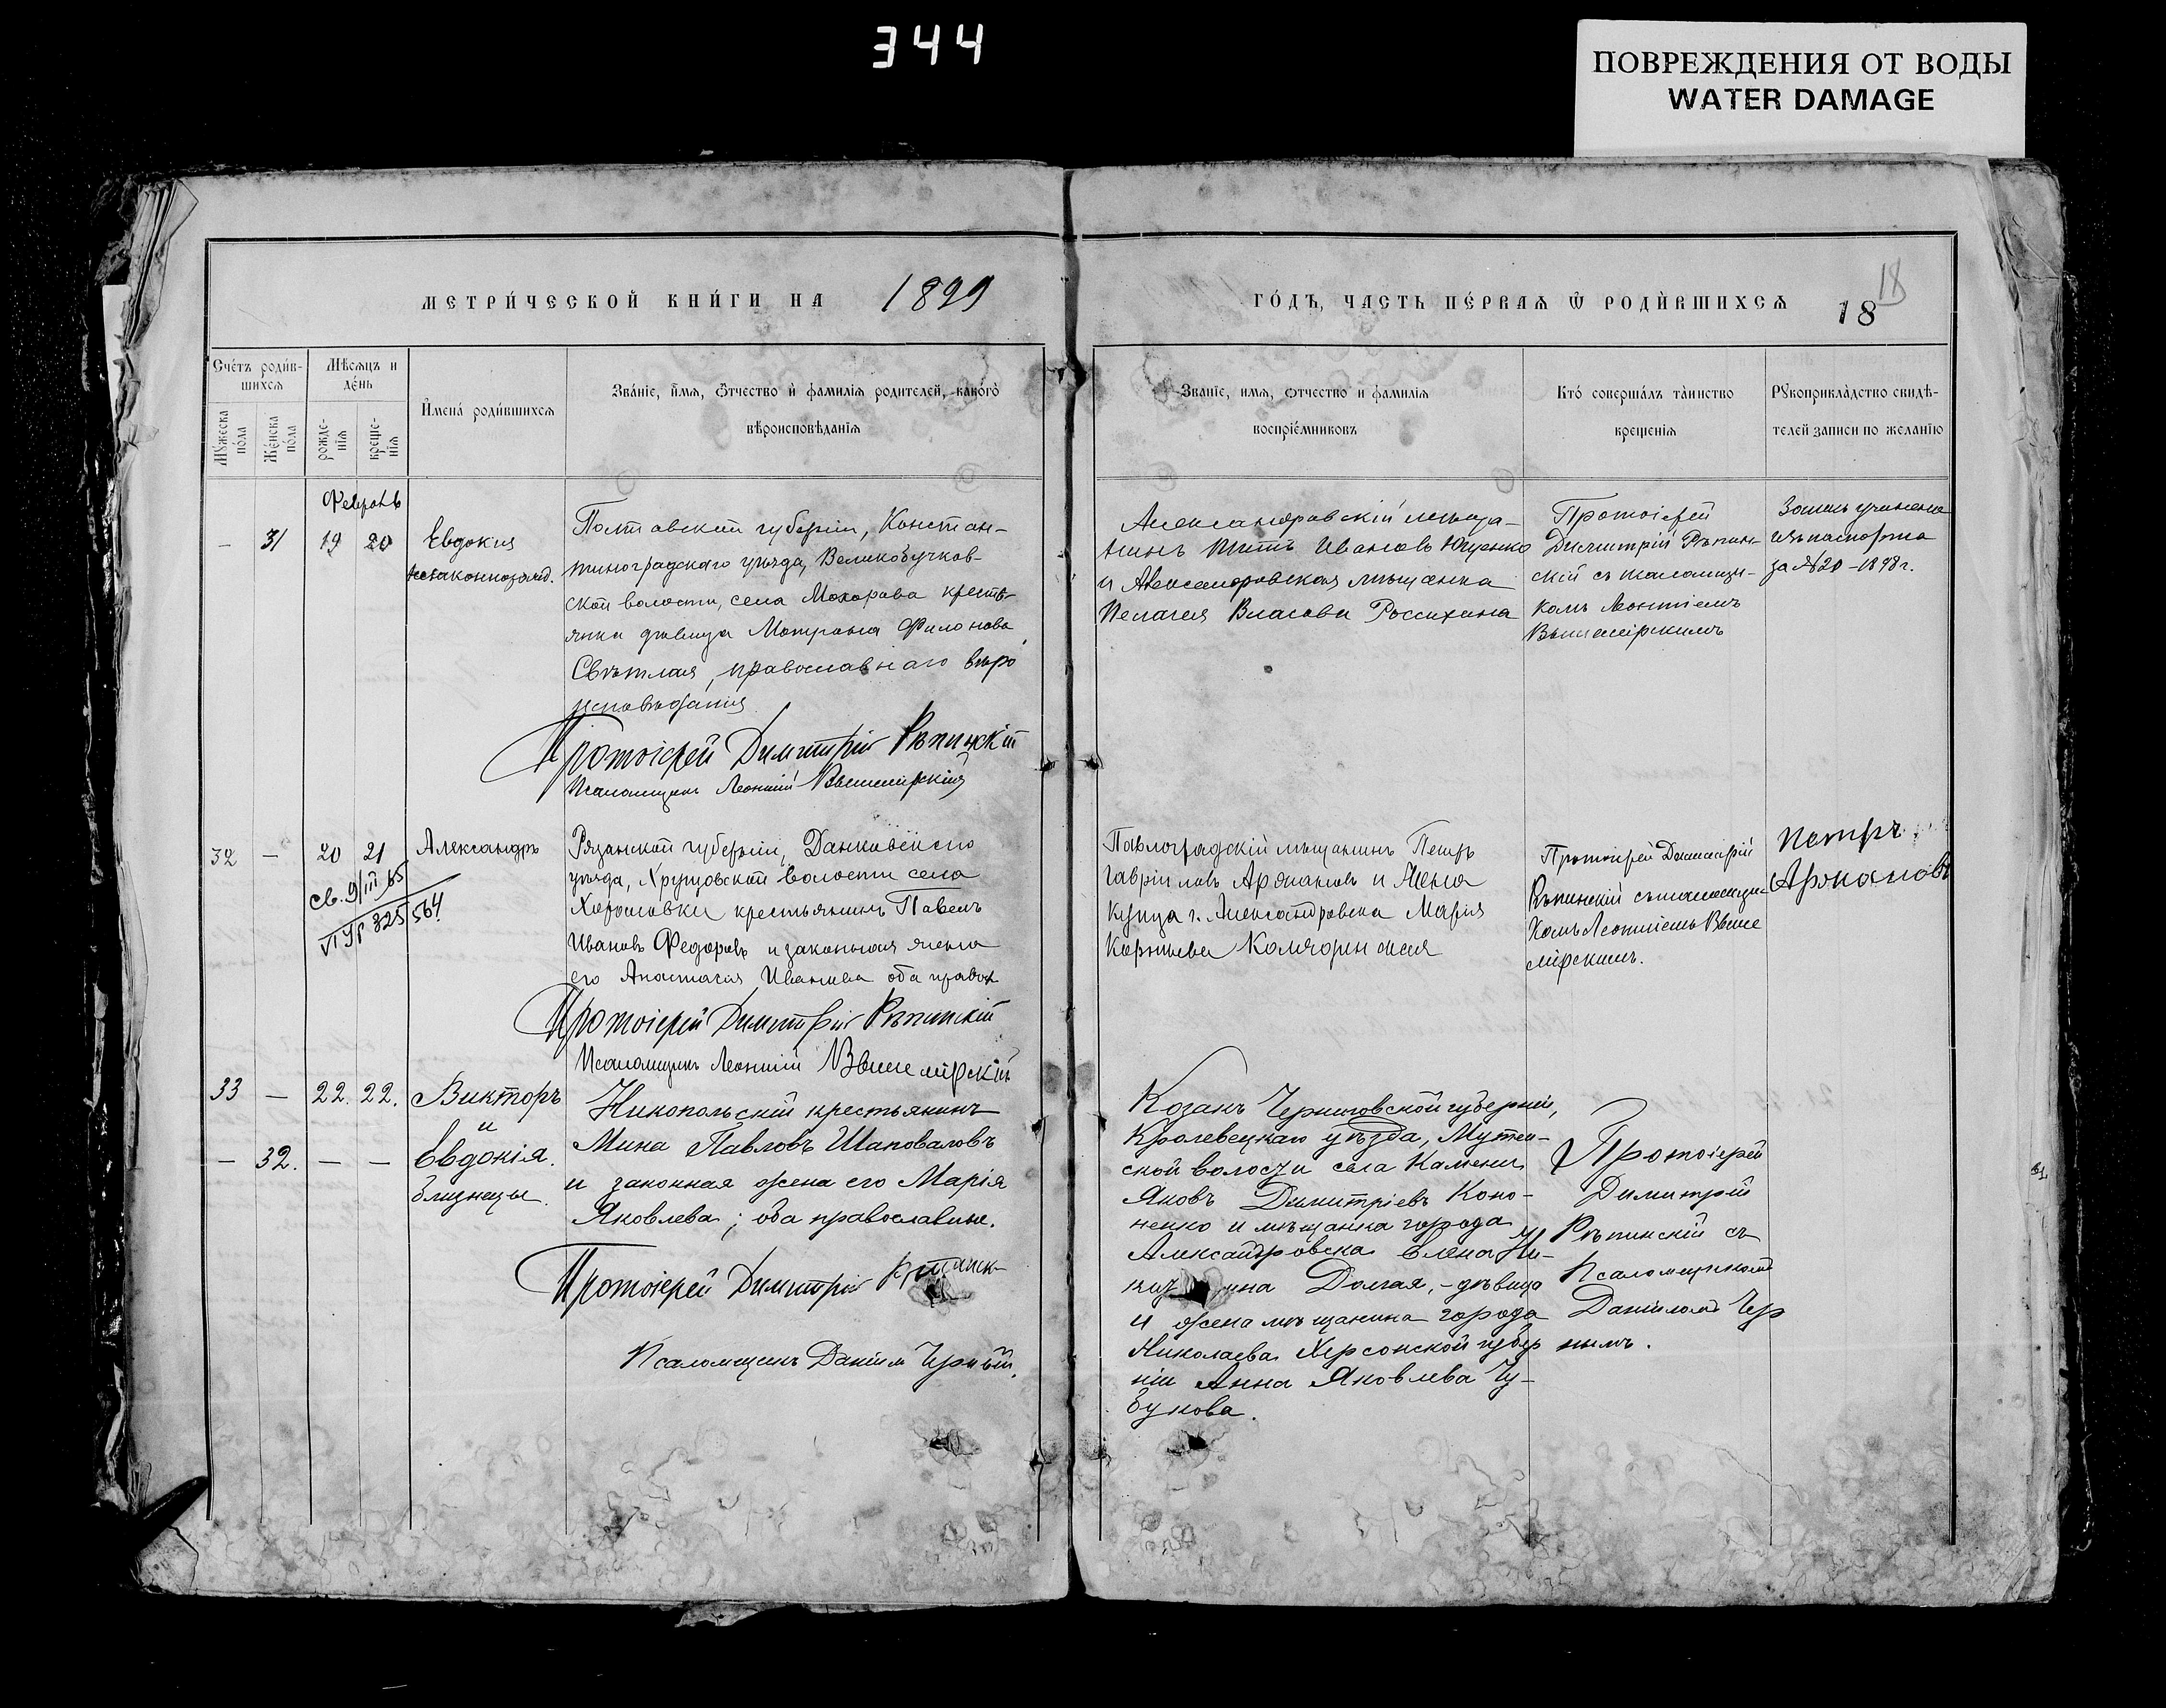 344
ПОВРЕЖДЕНИЯ ОТ ВОДЫ
WATER DAMAGE
МЕТРИ́ЧЕСКОЙ КНИ́ГИ НА 1899
ГО́ДЪ, ЧАСТЬ ПЕ́РВАѦ Ѿ РОДИ́ВШИХСѦ 18
18
Сче́тъ роди́в-
шихсѧ
Мѣсѧцъ и
де́нь
Мꙋ́жеска
по́ла
Же́нска
по́ла
рожде-
нїѧ
креще-
нїѧ
И҆мена̀ роди́вшихсѧ
Зва́нїе, и҆́мѧ, ѻ҆́тчество и҆ фамилїѧ родителей, како́гѡ
вѣроисповѣданїѧ
Званїе, имѧ, ѻтчество и фамилїѧ
воспрїе́мниковъ
Кто́ соверша́лъ та́инство
крещенїѧ
Рꙋкоприкла́дство свидѣ-
телей записи по желанїю
Февраль
— 31 19 20 Евдокия
незаконнорожд.
Полтавской губерніи, Констан-
тиноградскаго уѣзда, Великобучков-
ской волости, села Мохорава кресть-
янка дѣвица Матрона Филонова
Свѣтлая, православнаго вѣро
исповѣданія
Протоіерей Димитрій Рѣпинскій
Псаломщикъ Леонтій Вышемірскій
Александровскій мѣща-
нинъ Титъ Ивановъ Ющенко
и Александровская мѣщанка
Пелагея Власова Россихина
Протоіерей
Димитрій Рѣпин-
скій съ псаломщи-
комъ Леонтіемъ
Вышемірскимъ
Запись учинена
изъ паспорта
за №20-1898 г.
32 — 20 21 Александръ
св. 9/III 65
ПУР 325564
Рязанской губерніи, Данковскаго
уѣзда, Хрущовской волости села
Хорошовки крестьянинъ Павелъ
Ивановъ Федоровъ и законная жена
его Анастасія Иванова оба правос
Протоіерей Димитрій Рѣпинскій
Псаломщикъ Леонтій Вышемірскій
Павлоградскій мѣщанинъ Петръ
Гавріиловъ Аржановъ и жена
купца г. Александровска Марія
Корнѣева
Протоіерей Димитрій
Рѣпинскій съ псаломщи-
комъ Леонтіемъ Выше
мірскимъ.
Петръ
Аржановъ
33 — 22. 22. Викторъ
и
— 32. — — Евдокія.
близнецы.
Никопольскій крестьянинъ
Мина Павловъ Шаповаловъ
и законная жена его Марія
Яковлева; оба православные.
Протоіерей Димитрій
Псаломщикъ Даніилъ Черный.
Козакъ Черниговской губерніи,
Кролевецкаго уѣзда, Мутен-
ской волости села Камени
Яковъ Димитріевъ Коно-
ненко и мѣщанка города
Александровска Елена Ни-
Долгая,- дѣвица
и жена мѣщанина города
Николаева Херсонской губер
ніи Анна Яковлева Чу-
букова.
Протоіерей
Димитрій
Рѣпинскій съ
Псаломщикомъ
Даніиломъ Чер
нымъ.